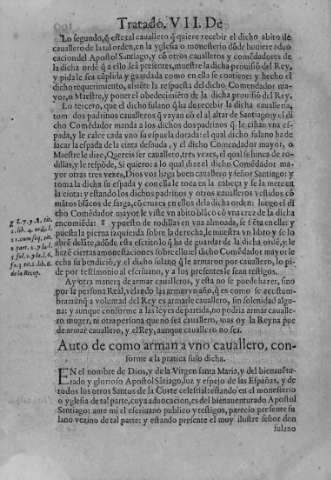 Tratado. VII. De
Lo segundo, q̃ este tal cauallero q̃ quiere recebir el dicho abito de
cauallero de la tal orden, en la yglesia o monesterio dõde huuiere aduo
cacion del Apostol Santiago, y cõ otros caualleros y comẽdadores de
la dicha ordẽ q̃ a ello sea presentes, muestre la dicha prouisiõ del Rey,
y pida le sea cũplida y guardada como en ella se contiene y hecho el
dicho requerimiento, assiẽte la respuesta del dicho Comendador ma
yor, o Maestre, y poner el obedecimiẽto de la dicha prouisiõ del Rey.
Lo tercero, que el dicho fulano q̃ ha de recebir la dicha caualleria,
tom dos padrinos caualleros q̃ vayan cõ el al altar de Santiago y el di
cho Comẽdador manda a los dichos dos padrinos q̃ le ciñan vna es-
pada, y le calce cada vno su espuela dorada: el qual dicho fulano ha de
sacar la espada de la cinta desnuda, y el dicho Comendador mayor, o
Maestre le dize, Quereis ser cauallero, tres vezes, el qual se hinca de ro-
dillas, y le respõde, Si quiero: a lo qual dize el dicho Comẽdador ma-
yor otras tres vezes, Dios vos haga buen cauallero y señor Santiago: y
toma la dicha su espada, y con ella le toca en la cabeça y se la mete en
la cinta: y estando los dichos padrinos y otros caualleros vestidos cõ
mãtos blãcos de sarga, cõ cruzes en ellos de la dicha orden: luego el di
cho Comẽdador mayor le viste vn abito blãco cõ vna cruz de la dicha
encomiẽda: y puesto de rodillas en vna almoada, se siẽta en ellas y
puesta la pierna izquierda sobre la derecha, le muestra vn libro y se lo
abrẽ delãte, adõde esta escrito lo q̃ ha de guardar de la dicha ordẽ, y le
hazẽ ciertas amonestaciones sobre ello: el dicho Comẽdador mayor le
echa su bendiciõ, y el dicho fulano q̃ se armo por cauallero, lo pi-
de por testimonio al escriuano, y a los presentes le sean testigos.
Ay otra manera de armar caualleros, y esta no se puede hazer, sino
por la persona Real, velando las armas vn año, q̃ es como se acostum-
braua: mas q̃ a voluntad del Rey es armarle cauallero, sin solenidad algu-
na: y aunque conforme a las leyes de partida, no podria armar caualle-
ro muger, ni otra persona que no sea cauallero, mas oy la Reyna pue
de armar cauallero, y el Rey, aunque cauallero no sea.
Auto de como arman a vno cauallero, con-
forme a la pratica suso dicha.
EN el nombre de Dios, y de la Virgen santa Maria, y del bienauẽtu-
rado y glorioso Apostol Sãtiago, luz y espejo de las Españas, y de
todos los otros Santos de la Corte celestial: estando en el monesterio
o yglesia de tal parte, cuya aduocacion, es del bienauenturado Apostol
Santiago: ante mi el escriuano publico y testigos, parecio presente fu
lano vezino de tal parte: y estando presente el muy ilustre señor don
fulano